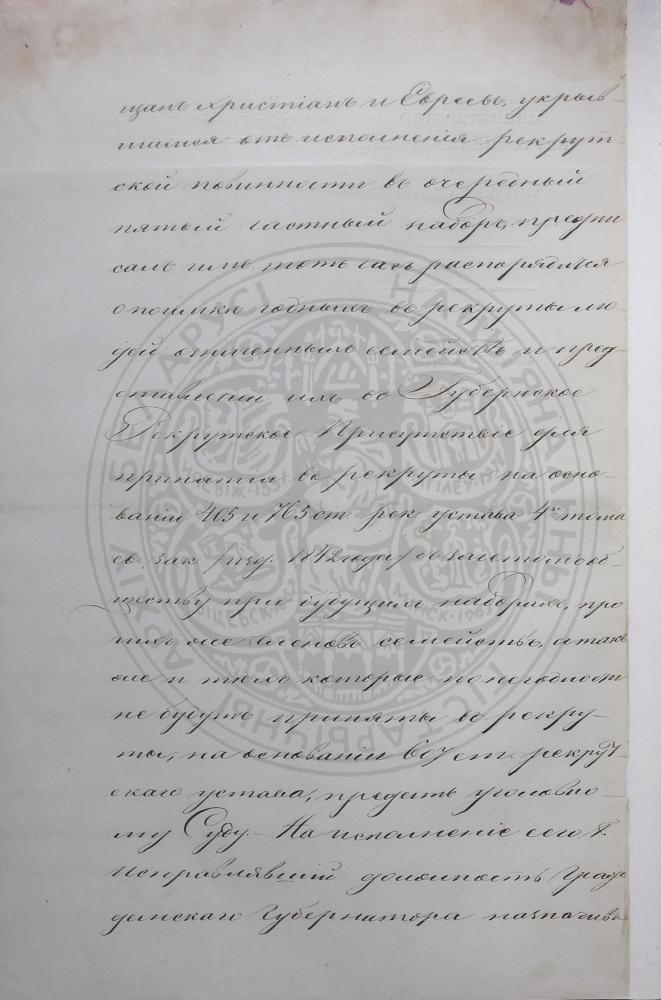 щанъ христіанъ и Евреевъ, укрыв-
шимся отъ исполненія рекрут-
ской повинности въ очередный
пятый частный наборъ, предпи
салъ имъ тотъ часъ распорядиться
о поимкѣ годныхъ въ рекруты лю-
дей означенныхъ семействъ и пред-
ставленіи ихъ въ Губернское
Рекрутское Присутствіе для
принятія въ рекруты на осно-
ваніи 405 и 765 ст. рек. устава 4го тома
св. зак. /изд. 1842 года/ съ зачетомъ об-
ществу при будущихъ наборахъ, про
чихъ же членовъ семействъ, а так
же и тѣхъ которые по негодности
не будутъ приняты въ рекру-
ты, на основаніи 607 ст. рекрут-
скаго устава, предать уголовно-
му Суду. - На исполненіе сего Г.
Исправлявшій должность Граж
данскаго Губернатора назначивъ